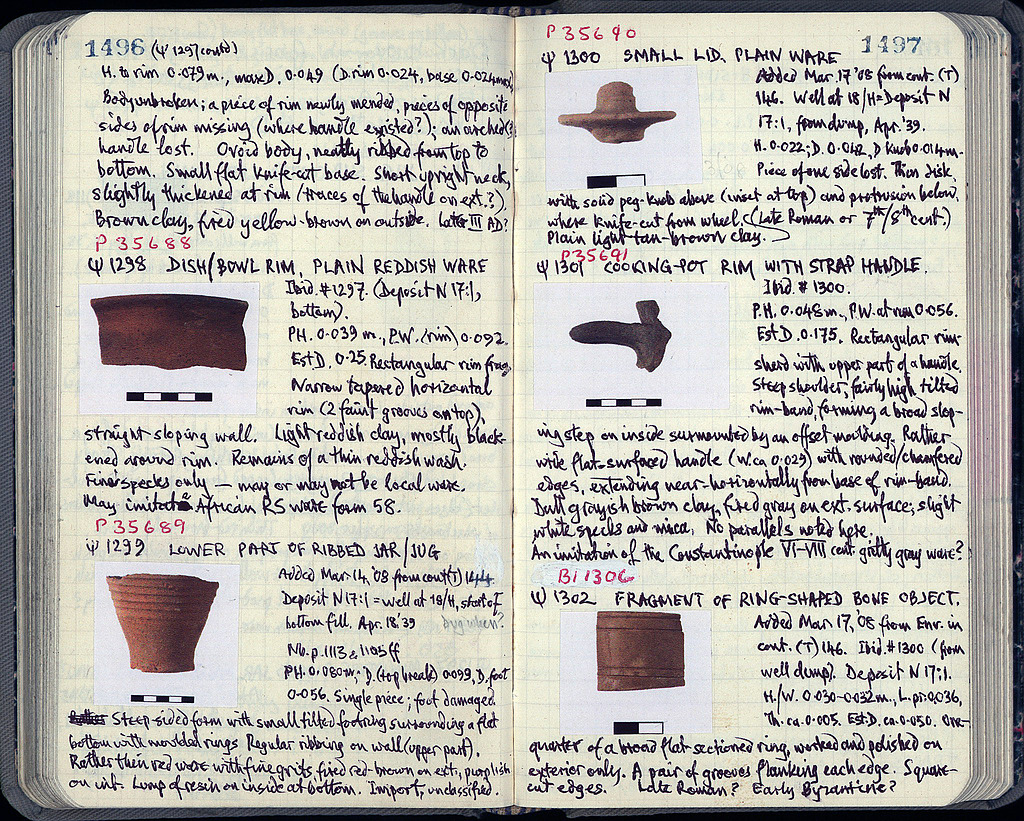 1496 (Ψ 1297 contd)
H. to rim 0.079 m., max D. 0.049 (D. rim 0.024, base 0.024 max)
Body unbroken; a piece of rim newly mended, pieces of opposite
sides of rim missing (where handle existed?); an arched(?)
handle lost. Ovoid body, neatly ribbed from top to
bottom. Small flat knife-cut base. Short upright neck,
slightly thickened at rim (traces of the handle on ext.?)
Brown clay, fired yellow-brown on outside. Later III AD?
P 35688
Ψ 1298 DISH/BOWL RIM, PLAIN REDDISH WARE
Ibid. #1297. (Deposit N 17:1,
bottom).
PH. 0.039 m., P.W. (rim) 0.092.
Est D. 0.25. Rectangular rim frag.
Narrow tapered horizontal
rim (2 faint grooves on top),
straight sloping wall. Light reddish clay, mostly black-
ened around rim. Remains of a thin reddish wash.
Finer specks only — may or may not be local ware.
May imitate African RS ware form 58.
P 35689
Ψ 1299 LOWER PART OF RIBBED JAR/JUG
Added Mar. 14, '08 from cont (T) 144.
Deposit N 17:1 = Well at 18/H, start of
bottom fill. Apr. 18 '39
Nb. p. 1113 & 1105 ff
PH. 0.080 m., D. (top break) 0.099, D. foot
0.056. Single piece; foot damaged.
Steep-sided form with small tilted footring surrounding a flat
bottom with moulded rings. Regular ribbing on wall (upper part).
Rather thin red ware with fine grits, fired red-brown on ext., purplish
on int. Lump of resin on inside at bottom. Import, unclassified.
P 35690
1497
Ψ 1300 SMALL LID, PLAIN WARE
Added Mar. 17 '08 from cont. (T)
146. Well at 18/H = Deposit N
17:1, from dump, Apr. '39.
H. 0.022; D. 0.042, D knob 0.014 m.
Piece of one side lost. Thin disk,
with solid peg-knob above (inset at top) and protrusion below,
where knife-cut from wheel. (Late Roman or 7th/8th cent.)
Plain light tan-brown clay.
P 35691
Ψ 1301 COOKING-POT RIM WITH STRAP HANDLE.
Ibid. # 1300.
P.H. 0.048 m., P.W. at rim 0.056.
Est D. 0.175. Rectangular rim-
sherd with upper part of a handle.
Steep shoulder, fairly high tilted
rim-band, forming a broad slop-
ing step on inside surmounted by an offset moulding. Rather
wide flat-surfaced handle (W. ca 0.029) with rounded/chamfered
edges, extending near-horizontally from base of rim-band.
Dull grayish brown clay, fired gray on ext. surface; slight
white specks and mica. No parallels noted here.
An imitation of the Constantinople VI-VIII cent gritty gray ware?
BI 1306
Ψ 1302 FRAGMENT OF RING-SHAPED BONE OBJECT.
Added Mar. 17, '08 from Enr. in
cont. (T) 146. Ibid. #1300 (from
well dump). Deposit N 17:1.
H./W. 0.030-0.032 m., L. pr. 0.036,
Th. ca 0.005. Est D. ca 0.050. One-
quarter of a broad flat-sectioned ring, worked and polished on
exterior only. A pair of grooves flanking each edge. Square-
cut edges. Late Roman? Early Byzantine?